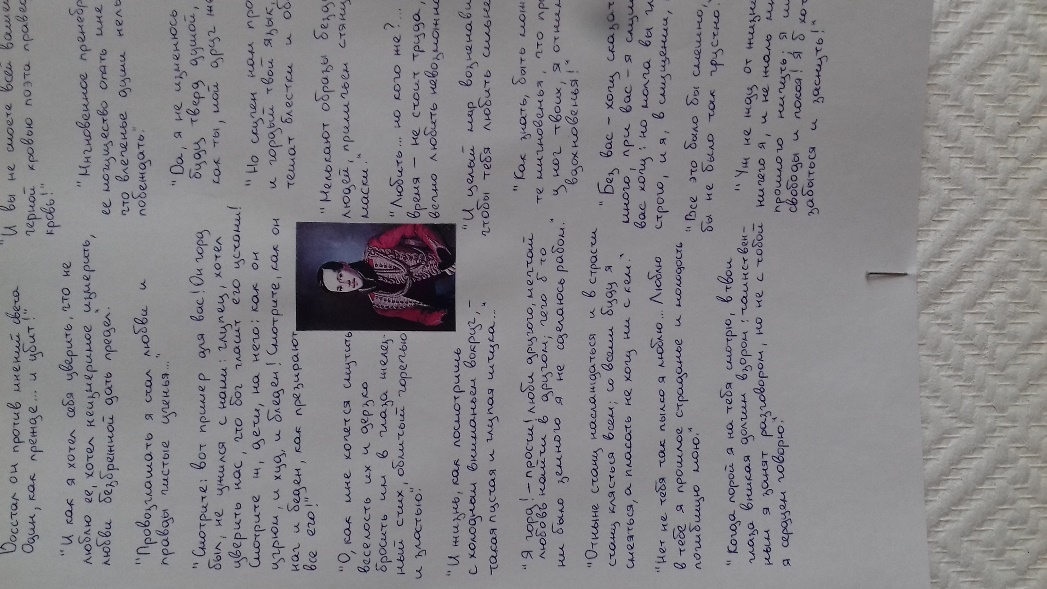 Восстал он против мнений света
Один, как прежде... и убит!"
"И как я хотел себя уверить, что не
люблю ее, хотел неизмеримое измерить,
любви безбрежной дать предел."
"Провозглашать я стал любви и
правды чистые ученья..."
"Смотрите: вот пример для вас! Он горд
был, не ужился с нами: глупец, хотел
уверить нас, что бог гласит его устами!
Смотрите ж, дети, на него: как он
угрюм, и худ, и бледен! Смотрите, как он
наг и беден, как презирают
все его!"
"О, как мне хочется смутить
веселость их и дерзко
бросить им в глаза желез-
ный стих, облитый горечью
и злостью."
"И жизнь, как посмотришь
с холодным вниманьем вокруг, -
такая пустая и глупая шутка..."
"Я горд! - прости! люби другого, мечтай
любовь найти в другом; чего б то
ни было земного я не сделаюсь рабом."
"Отныне стану наслаждаться и в страсти
стану клясться всем; со всеми буду я
смеяться, а плакать не хочу ни с кем."
"Нет не тебя так пылко я люблю... Люблю
в тебе я прошлое страданье и молодость
погибшую мою."
"Когда порой я на тебя смотрю, в твои
глаза вникая долгим взором: таинствен-
ным я занят разговором, но не с тобой
я сердцем говорю."
"И вы не смоете всей вашей
черной кровью поэта праведную
кровь!"
"Мгновенное пренебр
ее могущество опять мне
что влеченье души нель
побеждать."
"Да, я не изменюсь
буду тверд душой,
как ты, мой друг же
"Но скучен нам про
и гордый твой язык,
тешат блестки и об
"Мелькают образы безду
людей, приличьем стяну
маски."
"Любить... но кого же?...
время - не стоит труда,
вечно любить невозможно
"И целый мир возненави
чтобы тебя любить сильне
"Как знать, быть мож
те мгновенья, что пр
у ног твоих, я отним
вдохновенья!"
"Без вас - хочу сказат
много при вас - я слуша
вас хочу: но молча вы гл
строго, и я, в смущении,
"Все это было бы смешно,
бы не было так грустно."
"Уж не жду от жизни
ничего я, и не жаль мн
прошлого ничуть; я ищ
свободы и покоя! я б хот
забыться и заснуть!"